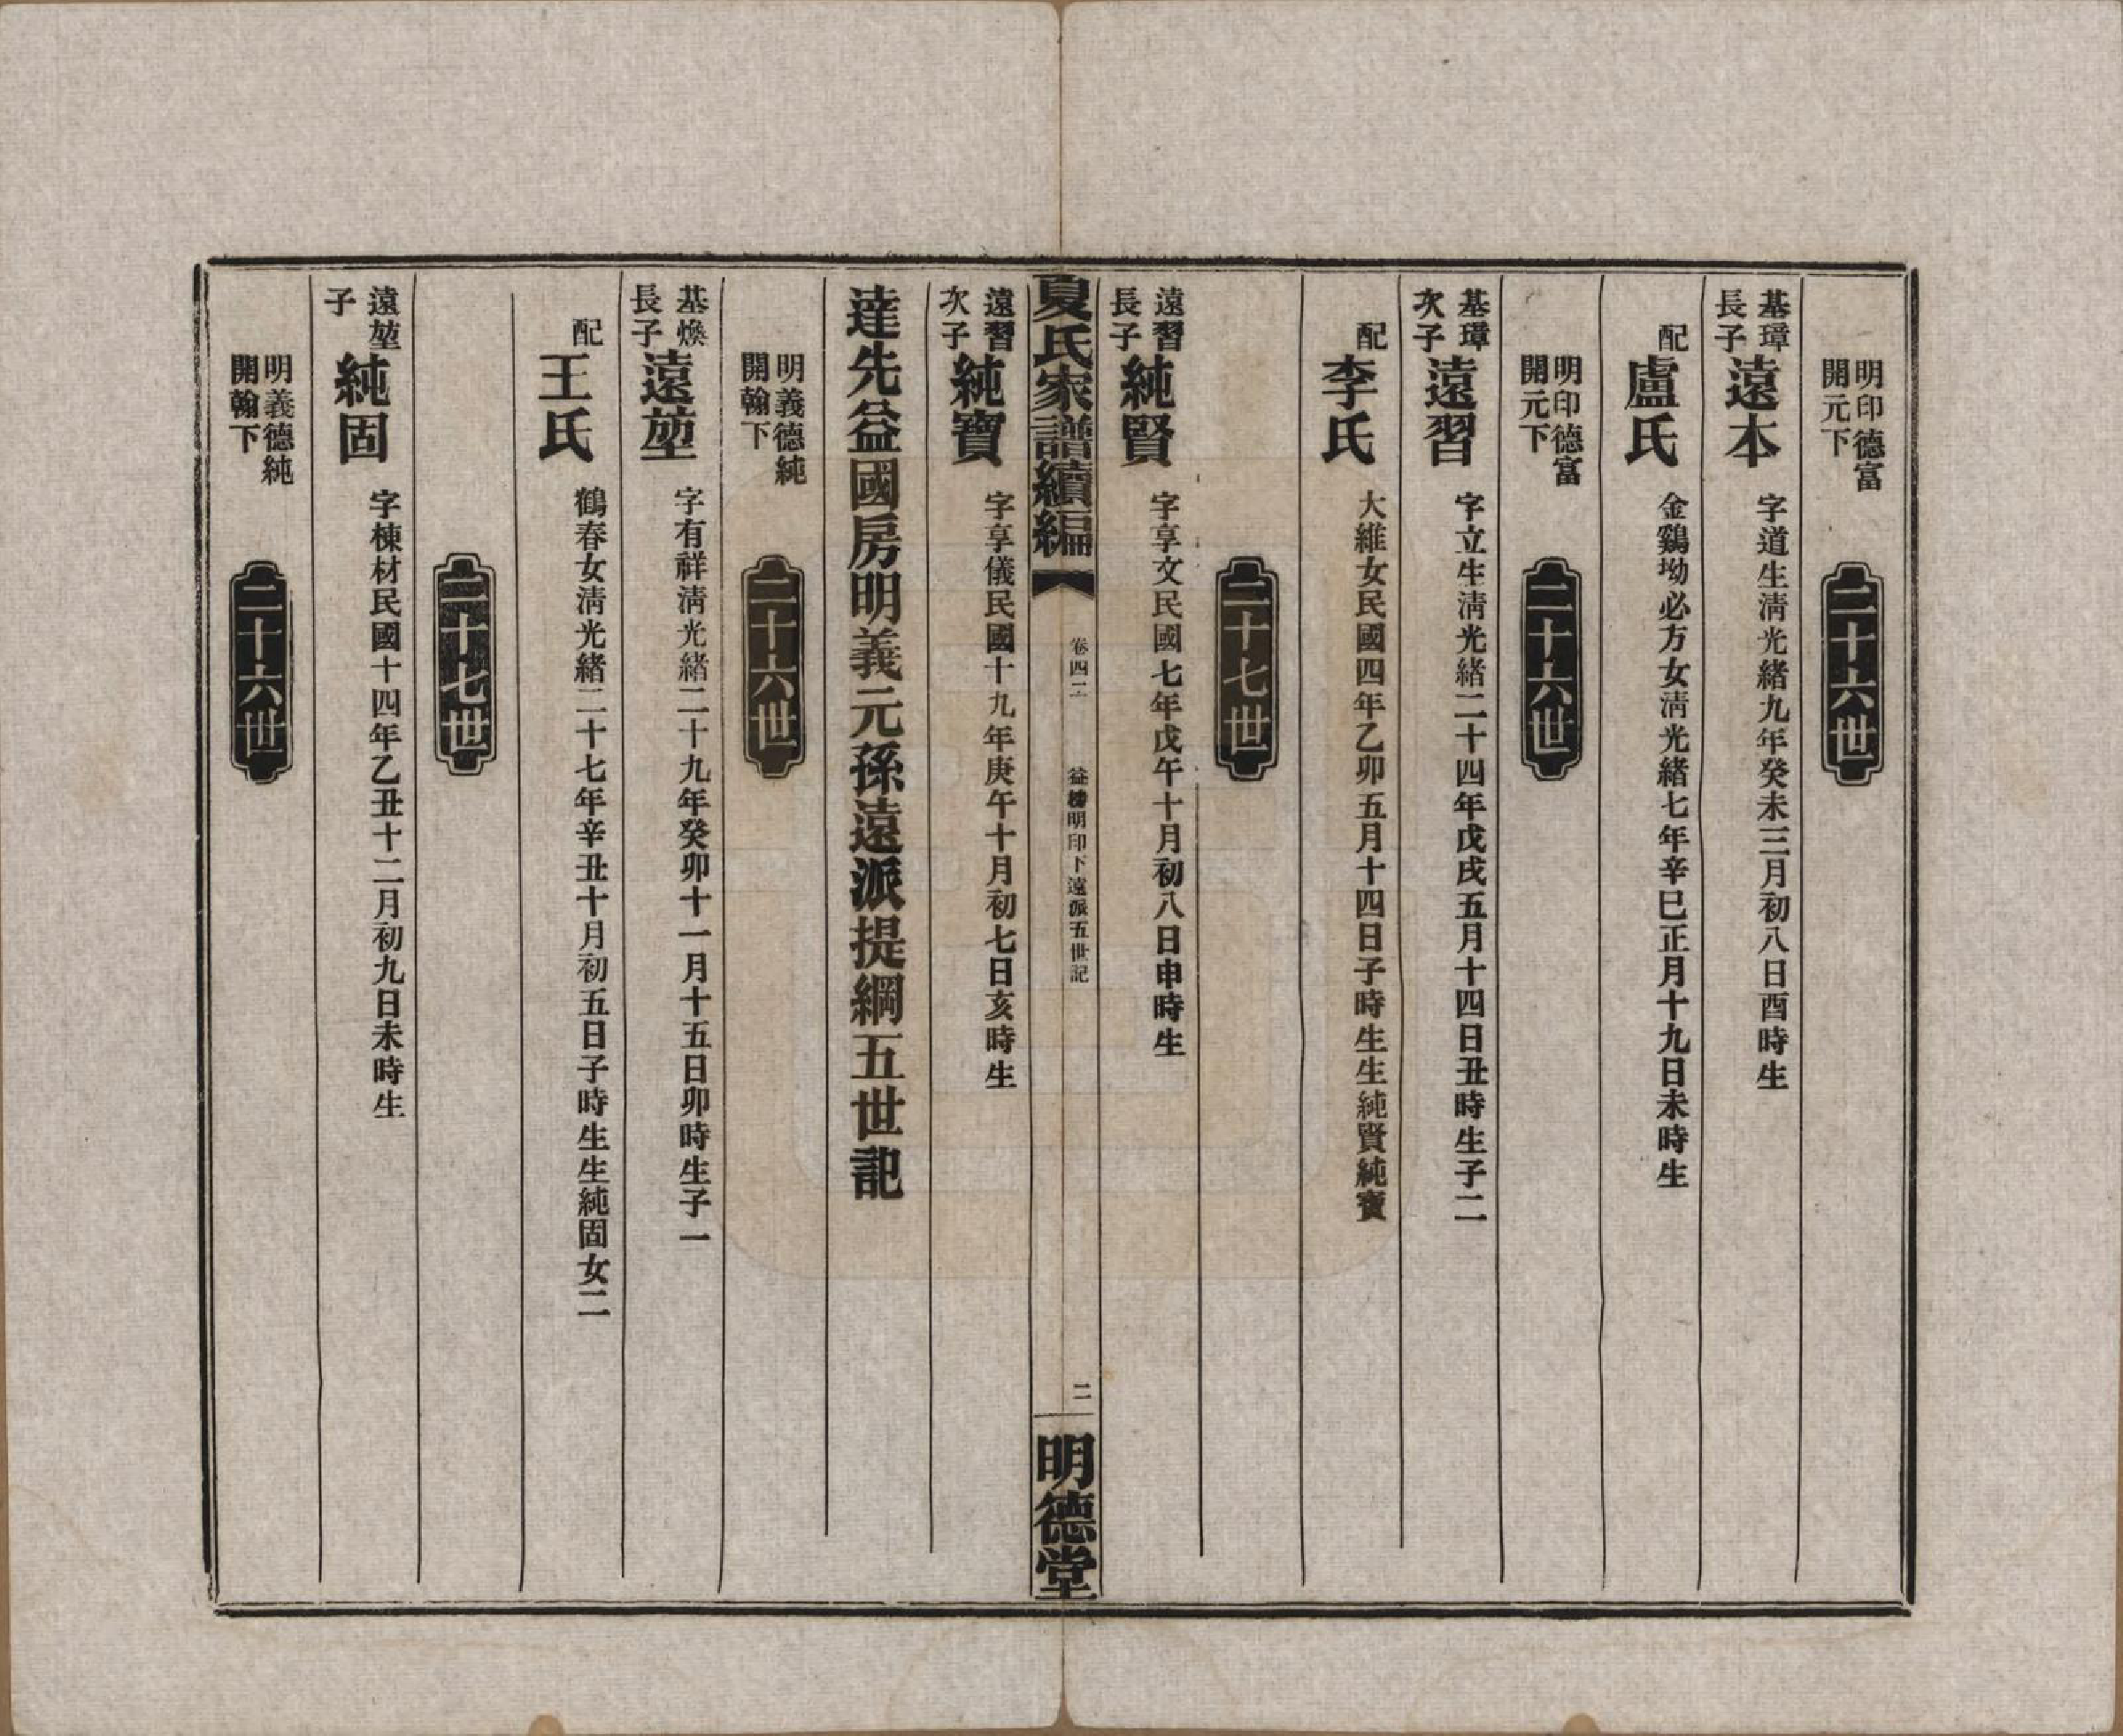 明印德富
開元下
二十六世
基璋
長子
遠本
字道生清光緒九年癸未三月初八日酉時生
配
盧氏
金鷄坳必方女清光緒七年辛巳正月十九日未時生
明印德富
開元下
二十六世
基璋
次子
遠習
字立生清光緒二十四年戊戌五月十四日丑時生子二
配
李氏
大維女民國四年乙卯五月十四日子時生生純賢純寶
二十七世
遠習
長子
純賢
字享文民國七年戊午十月初八日申時生
夏氏家譜續編
卷四二
益榜明印下遠派五世記
二
明德堂
遠習
次子
純寶
字享儀民國十九年庚午十月初七日亥時生
達先益國房明義元孫遠派提綱五世記
明義德純
開翰下
二十六世
基煥
長子
遠堃
字有祥清光緒二十九年癸卯十一月十五日卯時生子一
配
王氏
鶴春女清光緒二十七年辛丑十月初五日子時生生純固女二
二十七世
遠堃
子
純固
字棟材民國十四年乙丑十二月初九日未時生
明義德純
開翰下
二十六世